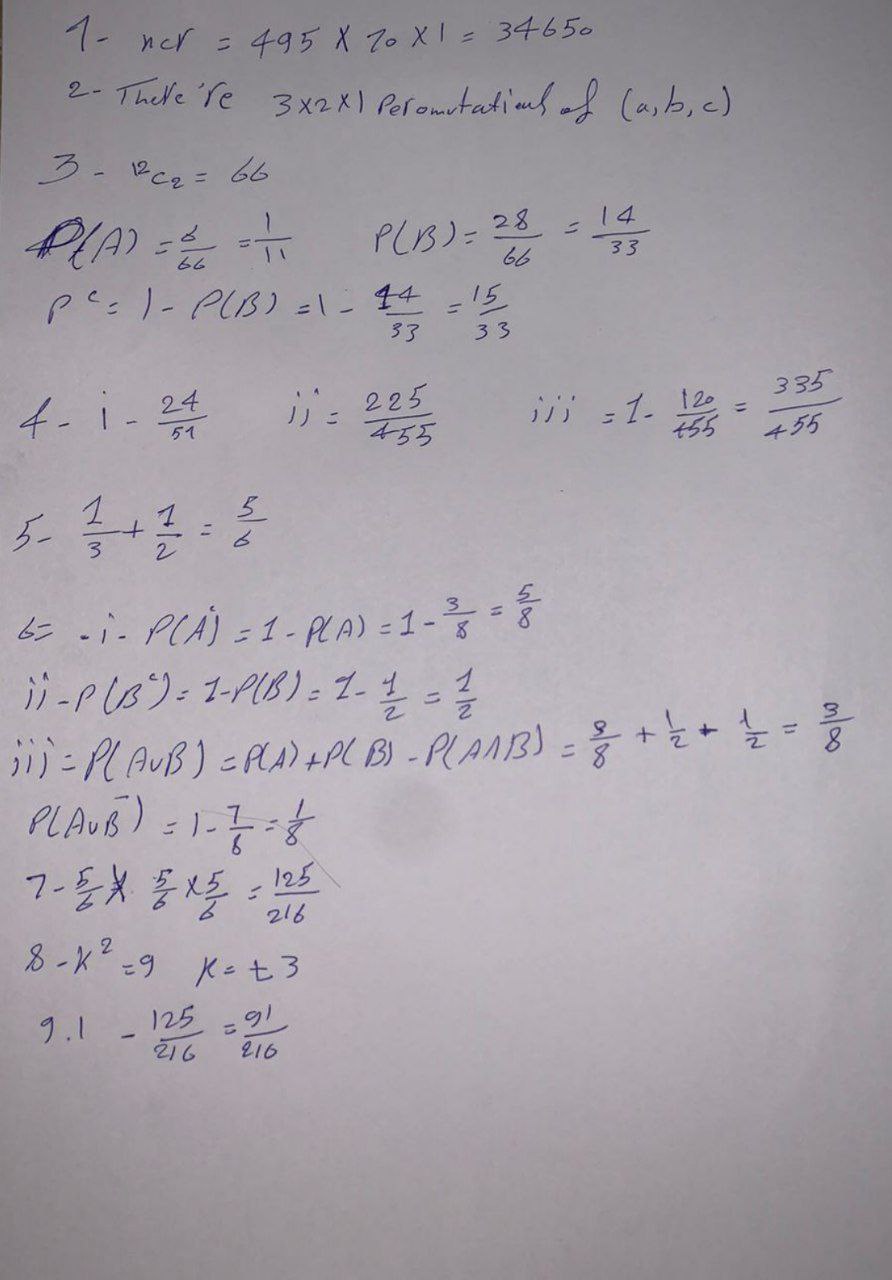 1- ncr = 495 X 70 X 1 = 34650
2- There're 3x2x1 Peromutations of (a,b,c)
3 - ¹²C₂ = 66
P(A) = 6/66 = 1/11 P(B) = 28/66 = 14/33
P ᶜ = 1 - P(B) = 1 - 14/33 = 15/33
4 - i - 24/51 ii = 225/455 iii = 1 - 120/455 = 335/455
5- 1/3 + 1/2 = 5/6
6= - i - P(A') = 1 - P(A) = 1 - 3/8 = 5/8
ii - P(Bᶜ) = 1 - P(B) = 1 - 1/2 = 1/2
iii = P(AUB) = P(A) + P(B) - P(A∩B) = 3/8 + 1/2 + 1/2 = 3/8
P(AUB‾) = 1 - 7/8 = 1/8
7 - 5/6 X 5/6 X 5/6 = 125/216
8 - K² = 9 K = ± 3
9.1 - 125/216 = 91/216